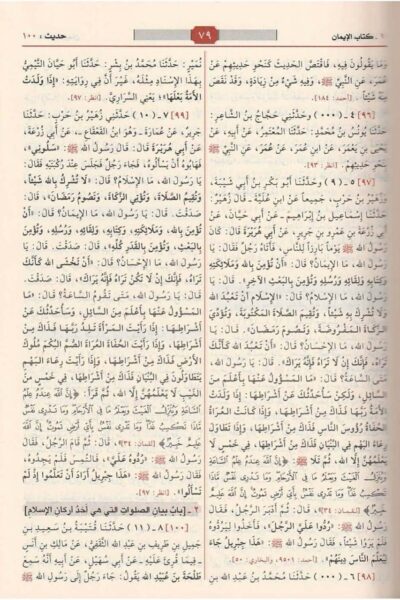 ٩ ـ كتاب الإيمان
٧٩
حديث: ١٠٠
وَمَا يَقُولُونَ فِيهِ، فَاقْتَصَّ الْحَدِيثَ كَنَحْوِ حَدِيثِهِمْ عَنْ
عُمَرَ، عَنِ النَّبِيِّ ﷺ، وَفِيهِ شَيْءٌ مِنْ زِيَادَةٍ، وَقَدْ نَقَصَ
مِنْهُ شَيْئاً. [أحمد: ١٨٤].
[٩٦] ٤ ـ (٠٠٠) وحَدَّثَنِي حَجَّاجُ بْنُ الشَّاعِرِ:
حَدَّثَنَا يُونُسُ بْنُ مُحَمَّدٍ: حَدَّثَنَا الْمُعْتَمِرُ، عَنْ أَبِيهِ، عَنْ
يَحْيَى بْنِ يَعْمَرَ، عَنِ ابْنِ عُمَرَ، عَنْ عُمَرَ، عَنِ النَّبِيِّ ﷺ
بِنَحْوِ حَدِيثِهِمْ. [انظر: ٩٣].
[٩٧] ٥ ـ (٩) وحَدَّثَنَا أَبُو بَكْرِ بْنُ أَبِي شَيْبَةَ،
وَزُهَيْرُ بْنُ حَرْبٍ، جَمِيعاً عَنِ ابْنِ عُلَيَّةَ ـ قَالَ زُهَيْرٌ:
حَدَّثَنَا إِسْمَاعِيلُ بْنُ إِبْرَاهِيمَ ـ عَنْ أَبِي حَيَّانَ، عَنْ
أَبِي زُرْعَةَ بْنِ عَمْرِو بْنِ جَرِيرٍ، عَنْ أَبِي هُرَيْرَةَ قَالَ: كَانَ
رَسُولُ اللهِ ﷺ يَوْماً بَارِزاً لِلنَّاسِ، فَأَتَاهُ رَجُلٌ فَقَالَ: يَا
رَسُولَ اللهِ، مَا الْإِيمَانُ؟ قَالَ: «أَنْ تُؤْمِنَ بِاللهِ وَمَلَائِكَتِهِ
وَكِتَابِهِ وَلِقَائِهِ وَرُسُلِهِ وَتُؤْمِنَ بِالْبَعْثِ الْآخِرِ». قَالَ: يَا
رَسُولَ اللهِ، مَا الْإِسْلَامُ؟ قَالَ: «الْإِسْلَامُ أَنْ تَعْبُدَ اللهَ
وَلَا تُشْرِكَ بِهِ شَيْئاً، وَتُقِيمَ الصَّلَاةَ الْمَكْتُوبَةَ، وَتُؤَدِّيَ
الزَّكَاةَ الْمَفْرُوضَةَ، وَتَصُومَ رَمَضَانَ». قَالَ: يَا
رَسُولَ اللهِ، مَا الْإِحْسَانُ؟ قَالَ: «أَنْ تَعْبُدَ اللهَ كَأَنَّكَ
تَرَاهُ، فَإِنَّكَ إِنْ لَا تَرَاهُ فَإِنَّهُ يَرَاكَ». قَالَ: يَا رَسُولَ اللهِ،
مَتَى السَّاعَةُ؟ قَالَ: «مَا الْمَسْؤُولُ عَنْهَا بِأَعْلَمَ مِنَ
السَّائِلِ، وَلَكِنْ سَأُحَدِّثُكَ عَنْ أَشْرَاطِهَا: إِذَا وَلَدَتِ
الْأَمَةُ رَبَّهَا فَذَاكَ مِنْ أَشْرَاطِهَا، وَإِذَا كَانَتِ الْعُرَاةُ
الْحُفَاةُ رُؤُوسَ النَّاسِ فَذَاكَ مِنْ أَشْرَاطِهَا، وَإِذَا تَطَاوَلَ
رِعَاءُ الْبَهْمِ فِي الْبُنْيَانِ فَذَاكَ مِنْ أَشْرَاطِهَا، فِي خَمْسٍ لَا
يَعْلَمُهُنَّ إِلَّا اللهُ» ثُمَّ تَلَا ﷺ ﴿إِنَّ اللَّهَ عِندَهُ عِلْمُ
السَّاعَةِ وَيُنَزِّلُ الْغَيْثَ وَيَعْلَمُ مَا فِي الْأَرْحَامِ وَمَا تَدْرِي نَفْسٌ
مَّاذَا تَكْسِبُ غَدًا وَمَا تَدْرِي نَفْسٌ بِأَيِّ أَرْضٍ تَمُوتُ إِنَّ اللَّهَ عَلِيمٌ
خَبِيرٌ﴾ [لقمان: ٣٤]. قَالَ: ثُمَّ أَدْبَرَ الرَّجُلُ، فَقَالَ
رَسُولُ اللهِ ﷺ: «رُدُّوا عَلَيَّ الرَّجُلَ»، فَأَخَذُوا لِيَرُدُّوهُ
فَلَمْ يَرَوْا شَيْئاً، فَقَالَ رَسُولُ اللهِ ﷺ: «هَذَا جِبْرِيلُ جَاءَ
لِيُعَلِّمَ النَّاسَ دِينَهُمْ». [أحمد: ٩٥٠١، والبخاري: ٥٠].
[٩٨] ٦ ـ (٠٠٠) حَدَّثَنَا مُحَمَّدُ بْنُ عَبْدِ اللهِ بْنِ
نُمَيْرٍ: حَدَّثَنَا مُحَمَّدُ بْنُ بِشْرٍ: حَدَّثَنَا أَبُو حَيَّانَ التَّيْمِيُّ
بِهَذَا الْإِسْنَادِ مِثْلَهُ، غَيْرَ أَنَّ فِي رِوَايَتِهِ: «إِذَا وَلَدَتِ
الْأَمَةُ بَعْلَهَا»؛ يَعْنِي السَّرَارِيَّ. [انظر: ٩٧].
[٩٩] ٧ ـ (١٠) حَدَّثَنِي زُهَيْرُ بْنُ حَرْبٍ: حَدَّثَنَا
جَرِيرٌ، عَنْ عُمَارَةَ ـ وَهُوَ ابْنُ الْقَعْقَاعِ ـ، عَنْ أَبِي زُرْعَةَ،
عَنْ أَبِي هُرَيْرَةَ قَالَ: قَالَ رَسُولُ اللهِ ﷺ: «سَلُونِي»،
فَهَابُوهُ أَنْ يَسْأَلُوهُ، فَجَاءَ رَجُلٌ فَجَلَسَ عِنْدَ رُكْبَتَيْهِ فَقَالَ:
يَا رَسُولَ اللهِ، مَا الْإِسْلَامُ؟ قَالَ: «لَا تُشْرِكُ بِاللهِ شَيْئاً،
وَتُقِيمُ الصَّلَاةَ، وَتُؤْتِي الزَّكَاةَ، وَتَصُومُ رَمَضَانَ». قَالَ:
صَدَقْتَ. قَالَ: يَا رَسُولَ اللهِ، مَا الْإِيمَانُ؟ قَالَ: «أَنْ
تُؤْمِنَ بِاللهِ، وَمَلَائِكَتِهِ، وَكِتَابِهِ، وَلِقَائِهِ، وَرُسُلِهِ، وَتُؤْمِنَ
بِالْبَعْثِ، وَتُؤْمِنَ بِالْقَدَرِ كُلِّهِ». قَالَ: صَدَقْتَ. قَالَ: يَا
رَسُولَ اللهِ، مَا الْإِحْسَانُ؟ قَالَ: «أَنْ تَخْشَى اللهَ كَأَنَّكَ
تَرَاهُ، فَإِنَّكَ إِنْ لَا تَكُنْ تَرَاهُ فَإِنَّهُ يَرَاكَ». قَالَ: صَدَقْتَ.
قَالَ: يَا رَسُولَ اللهِ، مَتَى تَقُومُ السَّاعَةُ؟ قَالَ: «مَا
الْمَسْؤُولُ عَنْهَا بِأَعْلَمَ مِنَ السَّائِلِ، وَسَأُحَدِّثُكَ عَنْ
أَشْرَاطِهَا: إِذَا رَأَيْتَ الْمَرْأَةَ تَلِدُ رَبَّهَا فَذَاكَ مِنْ
أَشْرَاطِهَا، وَإِذَا رَأَيْتَ الْحُفَاةَ الْعُرَاةَ الصُّمَّ الْبُكْمَ مُلُوكَ
الْأَرْضِ فَذَاكَ مِنْ أَشْرَاطِهَا، وَإِذَا رَأَيْتَ رِعَاءَ الْبَهْمِ
يَتَطَاوَلُونَ فِي الْبُنْيَانِ فَذَاكَ مِنْ أَشْرَاطِهَا، فِي خَمْسٍ مِنَ
الْغَيْبِ لَا يَعْلَمُهُنَّ إِلَّا اللهُ»، ثُمَّ قَرَأَ: ﴿إِنَّ اللَّهَ عِندَهُ عِلْمُ
السَّاعَةِ وَيُنَزِّلُ الْغَيْثَ وَيَعْلَمُ مَا فِي الْأَرْحَامِ وَمَا تَدْرِي نَفْسٌ
مَّاذَا تَكْسِبُ غَدًا وَمَا تَدْرِي نَفْسٌ بِأَيِّ أَرْضٍ تَمُوتُ إِنَّ اللَّهَ
عَلِيمٌ خَبِيرٌ﴾ [لقمان: ٣٤]. قَالَ: ثُمَّ قَامَ الرَّجُلُ، فَقَالَ
رَسُولُ اللهِ ﷺ: «رُدُّوهُ عَلَيَّ»، فَالْتُمِسَ فَلَمْ يَجِدُوهُ،
فَقَالَ رَسُولُ اللهِ ﷺ: «هَذَا جِبْرِيلُ أَرَادَ أَنْ تَعَلَّمُوا إِذْ لَمْ
تَسْأَلُوا». [انظر: ٩٧].
٢ ـ [بابُ بيانِ الصلواتِ التي هي أحدُ أركانِ الإسلامِ]
[١٠٠] ٨ ـ (١١) حَدَّثَنَا قُتَيْبَةُ بْنُ سَعِيدِ بْنِ
جَمِيلِ بْنِ طَرِيفِ بْنِ عَبْدِ اللهِ الثَّقَفِيُّ، عَنْ مَالِكِ بْنِ أَنَسٍ
ـ فِيمَا قُرِئَ عَلَيْهِ ـ، عَنْ أَبِي سُهَيْلٍ، عَنْ أَبِيهِ أَنَّهُ سَمِعَ
طَلْحَةَ بْنَ عُبَيْدِ اللهِ يَقُولُ: جَاءَ رَجُلٌ إِلَى رَسُولِ اللهِ ﷺ